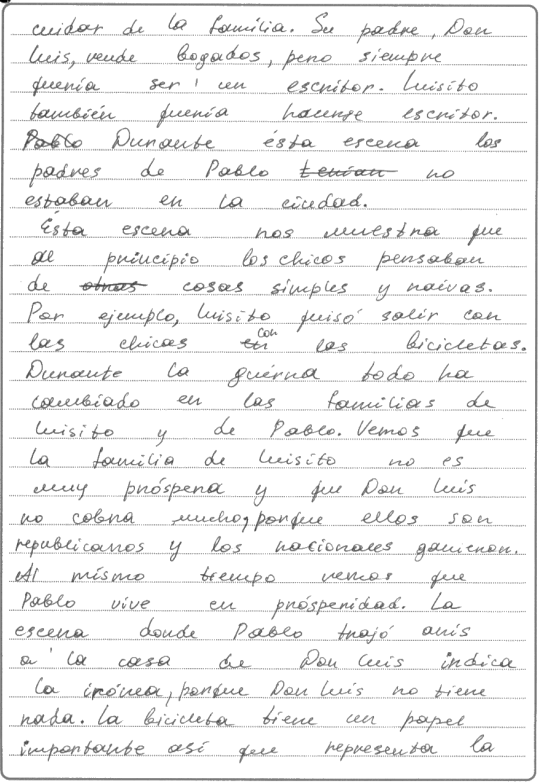 cuidar de la família. Su padre, Don
Luis, vende bogados, pero siempre
quería ser un escritor. Luisito
también quería haunse escritor.
Pablo Durante ésta escena los
padres de Pablo tenían no
estaban en la ciudad.
Ésta escena nos muestra que
al principio los chicos pensaban
de otras cosas simples y naivas.
Por ejemplo, Luisito quisó salir con
las chicas en con las bicicletas.
Durante la guérra todo ha
cambiado en las familias de
Luisito y de Pablo. Vemos que
la família de Luisito no es
muy próspera y que Don Luis
no cobra mucho, porque ellos son
republicanos y los nacionales ganieron.
Al mismo tiempo vemos que
Pablo vive en prósperidad. La
escena donde Pablo trajó anís
a la casa de Don Luis indica
la irónea, porque Don Luis no tiene
nada. La bicicleta tiene un papel
importante así que representa la